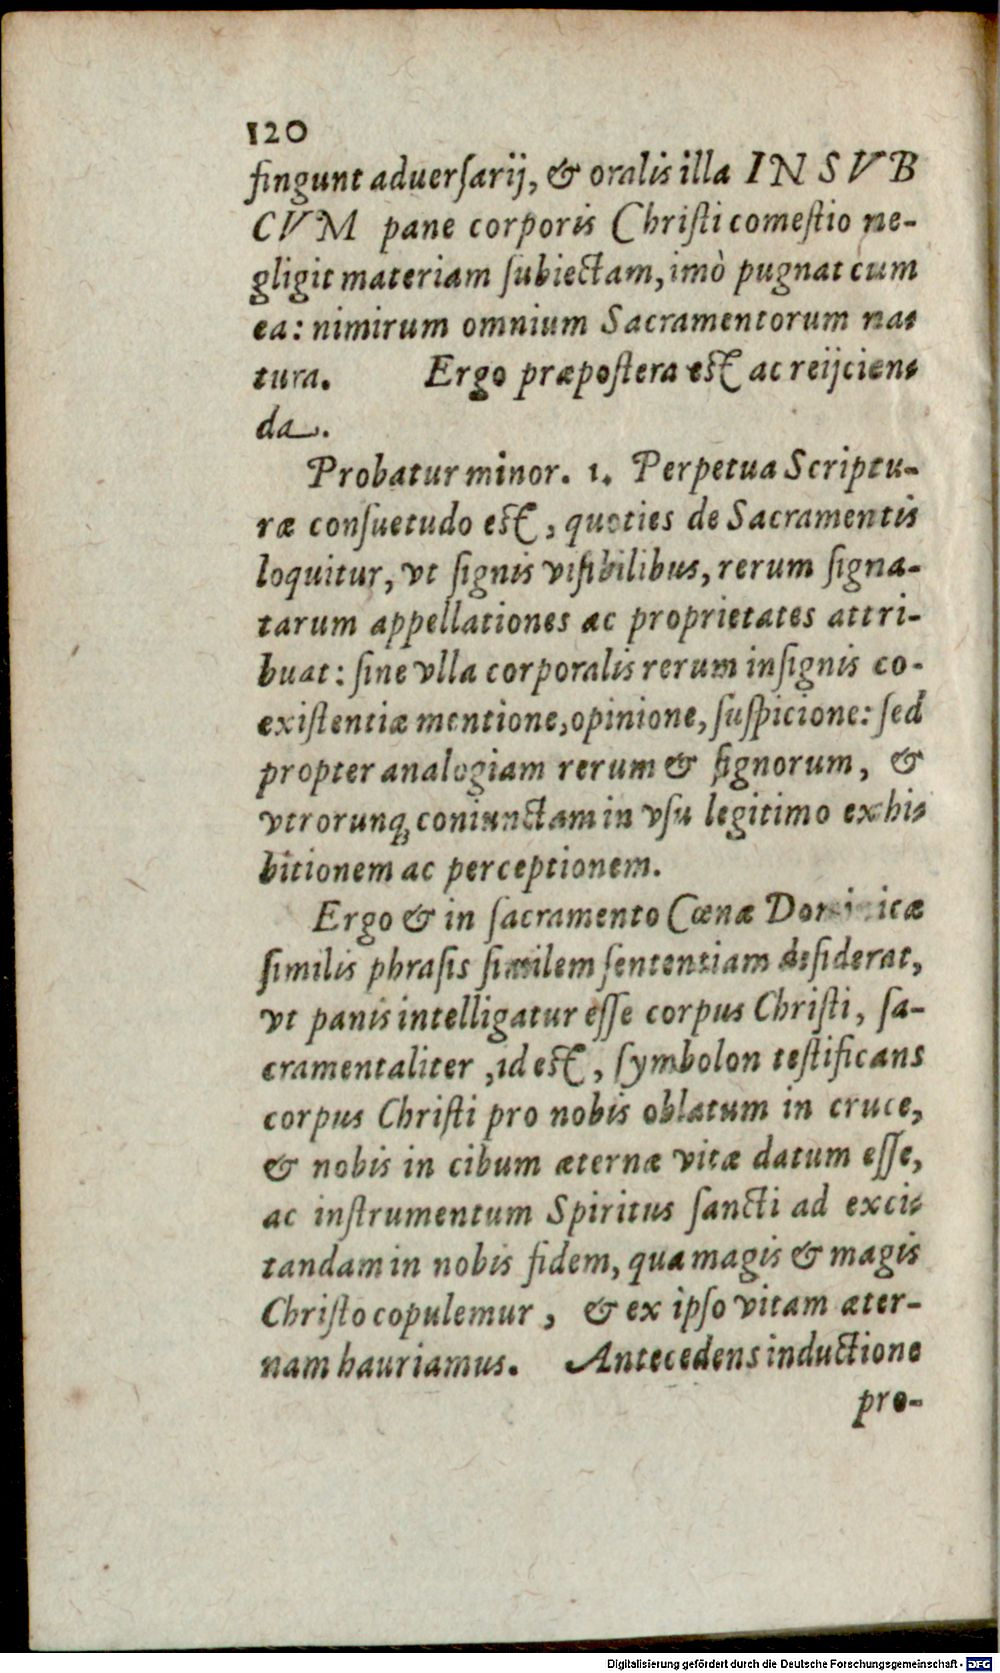 120
fingunt aduerſarij, & oralis illa IN SVB
CVM pane corporis Chriſti comeſtio ne-
gligit materiam ſubiectam, imò pugnat cum
ea: nimirum omnium Sacramentorum na-
tura. Ergo præpoſtera eſt ac reijcien-
da.
Probatur minor. 1. Perpetua Scriptu-
ræ conſuetudo eſt, quoties de Sacramentis
loquitur, vt ſignis viſibilibus, rerum ſigna-
tarum appellationes ac proprietates attri-
buat: ſine vlla corporalis rerum in ſignis co-
exiſtentiæ mentione, opinione, ſuſpicione: ſed
propter analogiam rerum & ſignorum, &
vtrorunq; coniunctam in vſu legitimo exhi-
bitionem ac perceptionem.
Ergo & in ſacramento Cœnæ Dominicæ
ſimilis phraſis ſimilem ſententiam deſiderat,
vt panis intelligatur eſſe corpus Chriſti, ſa-
cramentaliter, id eſt, ſymbolon teſtificans
corpus Chriſti pro nobis oblatum in cruce,
& nobis in cibum æternæ vitæ datum eſſe,
ac inſtrumentum Spiritus ſancti ad exci-
tandam in nobis fidem, qua magis & magis
Chriſto copulemur, & ex ipſo vitam æter-
nam hauriamus. Antecedens inductione
pro-
Digitalisierung gefördert durch die Deutsche Forschungsgemeinschaft - DFG